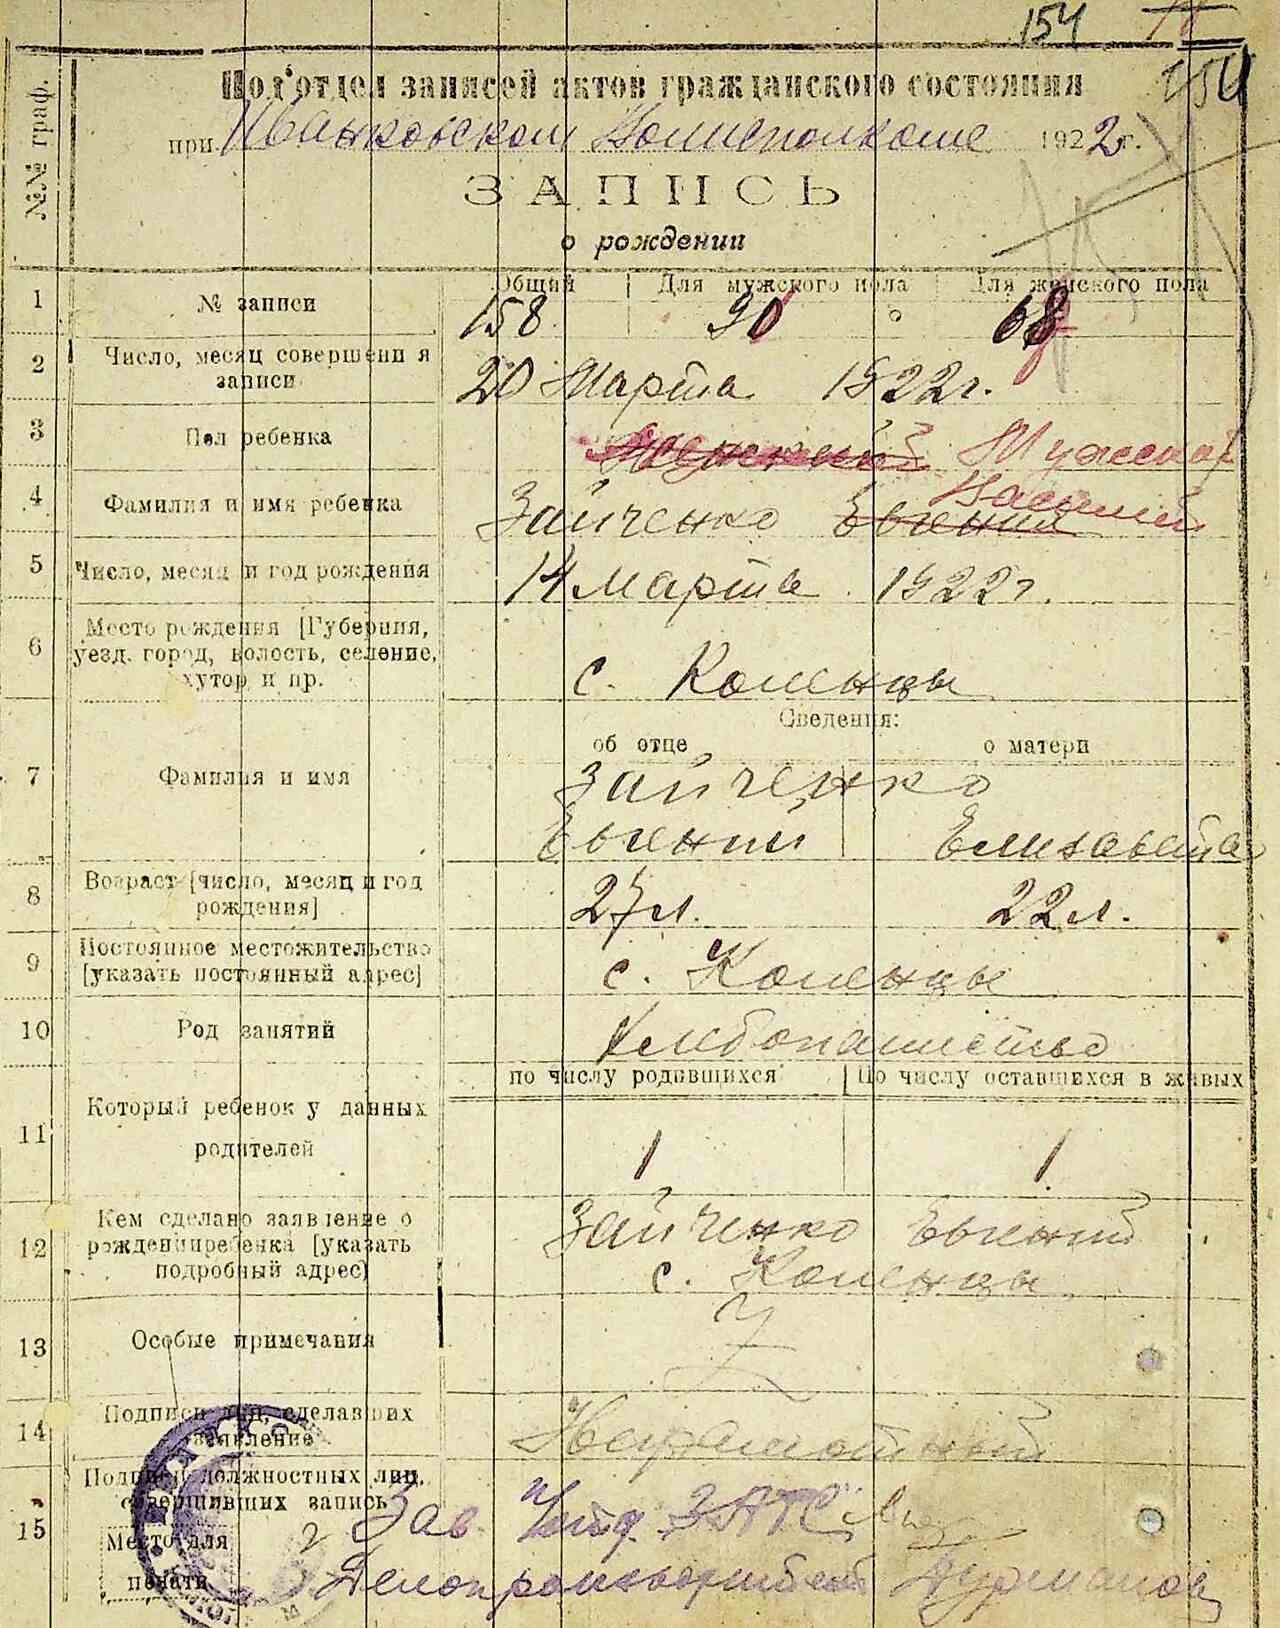 154
154
№№ граф.
Под'отдел записей актов гражданского состояния
при Иванковском Волисполкоме 1922 г.
ЗАПИСЬ
о рождении
Общий Для мужского пола Для женского пола
1 № записи 158 90 68
2 Число, месяц совершени я
записи 20 Марта 1922 г.
3 Пол ребенка Женский Мужской
4 Фамилия и имя ребенка Зайченко Евгения Василий
5 Число, месяц и год рождения 14 Марта 1922 г.
6 Место рождения [Губерния,
уезд. город, волость, селение,
хутор и пр. с. Коленцы
Сведения:
об отце о матери
7 Фамилия и имя Зайченко
Евгений Елизавета
8 Возраст [число, месяц и год
рождения] 27 л. 22 л.
9 Постоянное местожительство
[указать постоянный адрес] с. Коленцы
10 Род занятий Хлебопашество
по числу родившихся По числу оставшихся в живых
11 Который ребенок у данных
родителей 1 1
12 Кем сделано заявление о
рождении ребенка [указать
подробный адрес) Зайченко Евгений
с. Коленцы
13 Особые примечания
14 Подписи лиц, сделавших
заявление Неграмотный
15 Подписи должностных лиц,
совершивших запись Зав. ЗАГС
Место для
печати Делопроизводитель